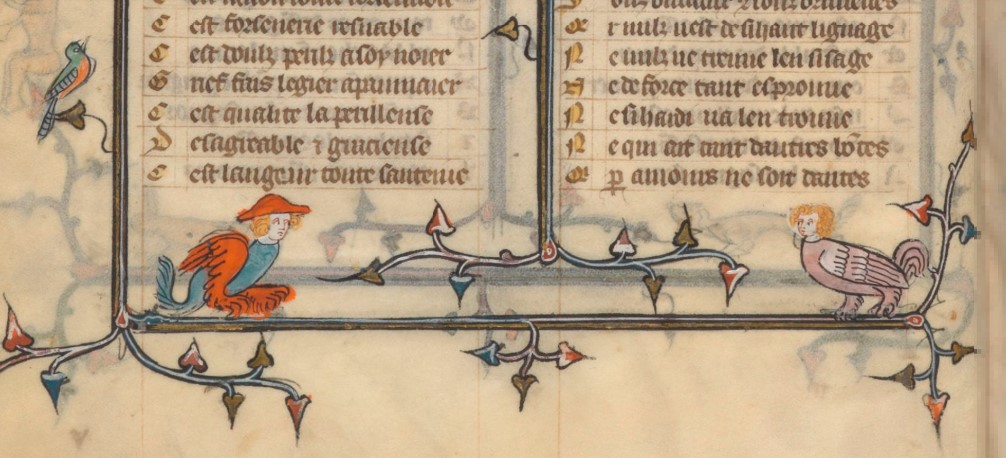 C est forsenerie resnable
C est doulz perilz a soy noier
G rief fais legier a paumaier
C est qualite la perilleuse
D esagreable ⁊ gracieuse
C est langeur toute santeuse
r nulz nest de si haut lignage
N e nulz ne treuue len si sage
N e de force tant esprouue
N e si hardi na len trouue
N e qui ait tant dautres bõtes
Q ꝑ amours ne soit dautes